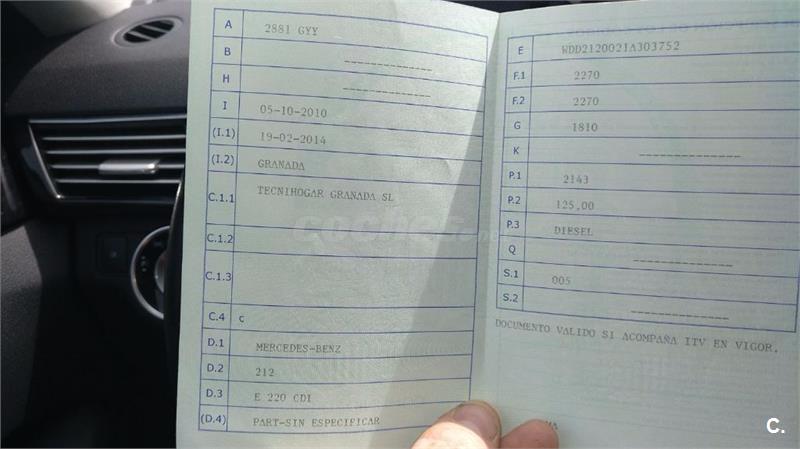 A 2881 GYY
B --------------
H --------------
I 05-10-2010
(I.1) 19-02-2014
(I.2) GRANADA
C.1.1 TECNIHOGAR GRANADA SL
C.1.2
C.1.3
C.4 c
D.1 MERCEDES-BENZ
D.2 212
D.3 E 220 CDI
(D.4) PART-SIN ESPECIFICAR
E WDD2120021A303752
F.1 2270
F.2 2270
G 1810
K --------------
P.1 2143
P.2 125,00
P.3 DIESEL
Q --------------
S.1 005
S.2 --------------
DOCUMENTO VALIDO SI ACOMPAÑA ITV EN VIGOR.
coches.net
C.